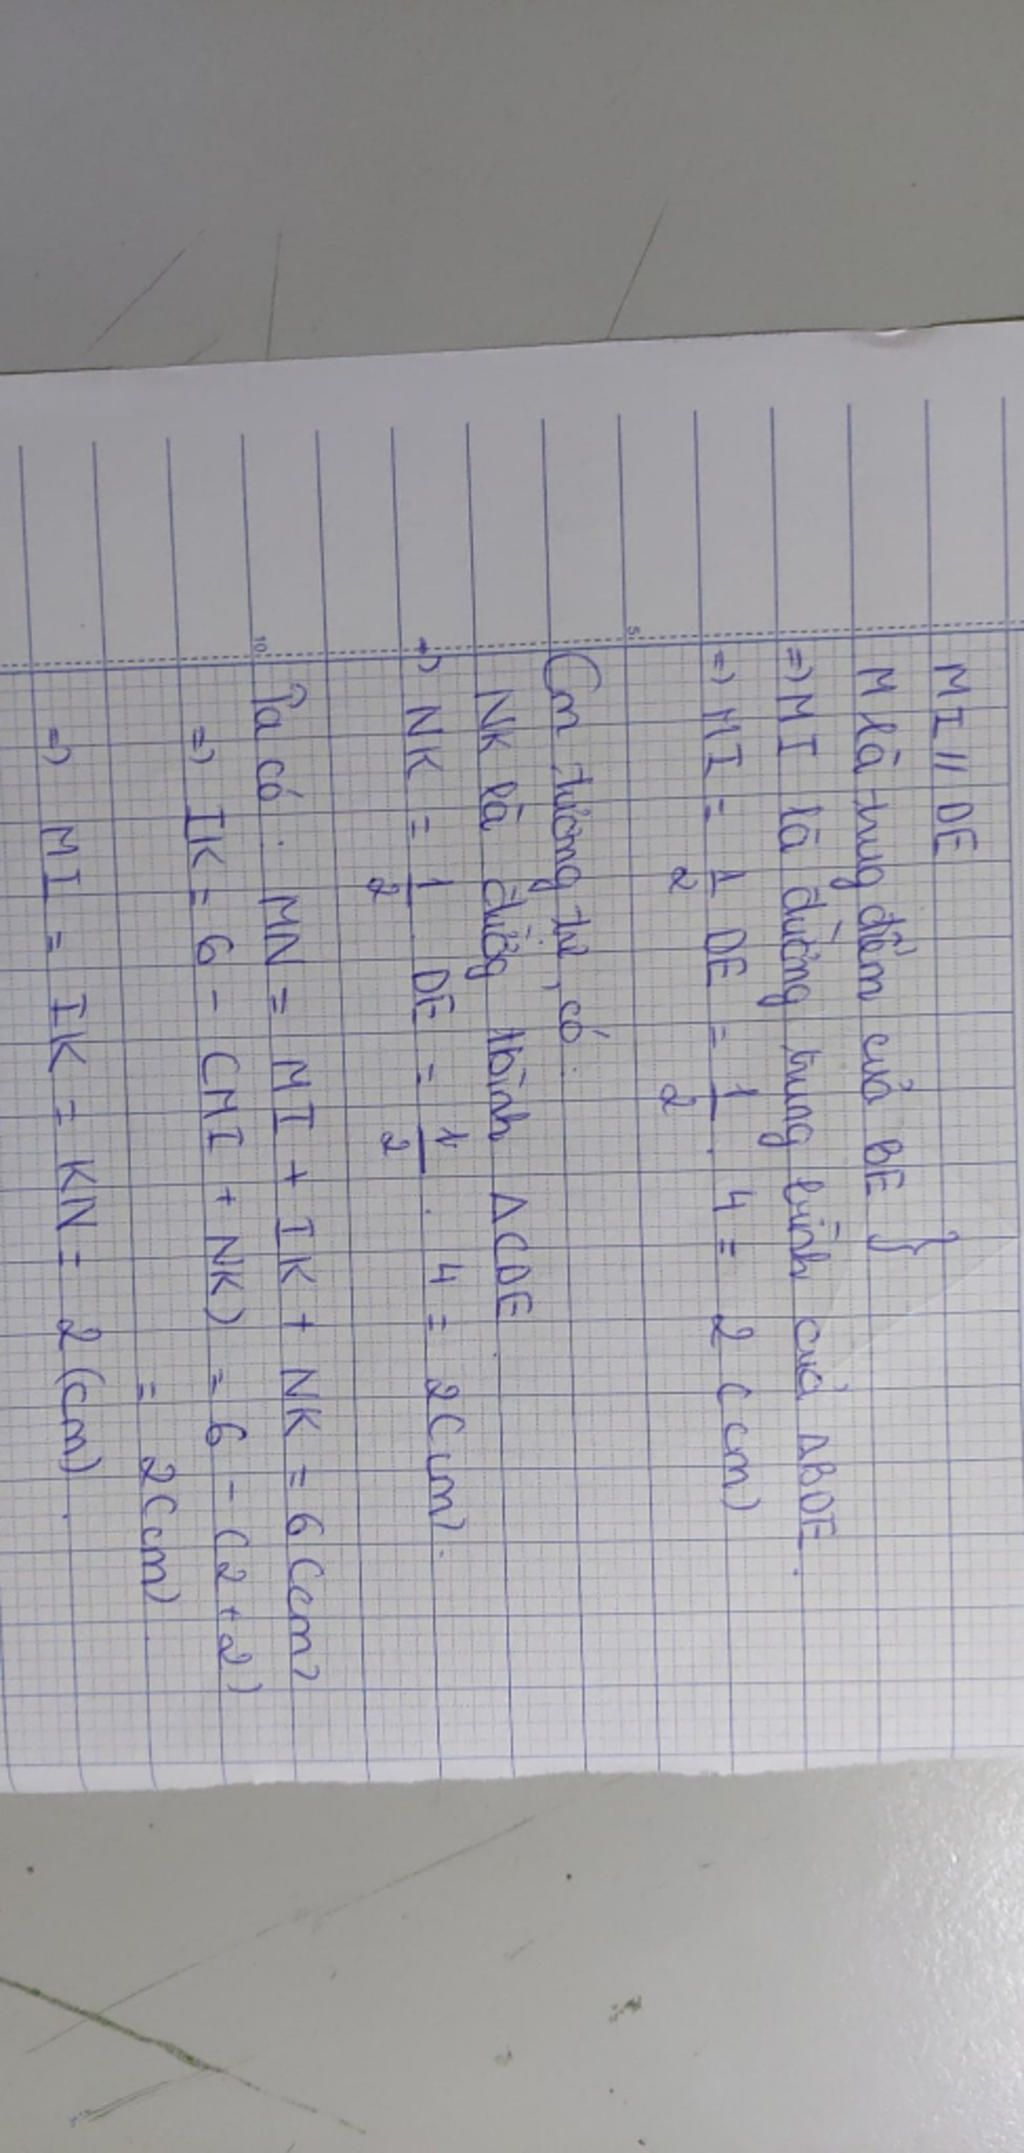 MI // DE
M là trug điểm của BE }
=) MI là đường trung bình của ΔBDE.
=) MI = 1/2 DE = 1/2 . 4 = 2 (cm)
5
Cm tương tự, có:
NK là đường tbình ΔCDE.
=) NK = 1/2 DE = 1/2 . 4 = 2(cm).
10 Ta có: MN = MI + IK + NK = 6 (cm)
=) IK = 6 - (MI + NK) = 6 - (2+2)
= 2(cm)
=) MI = IK = KN = 2 (cm).